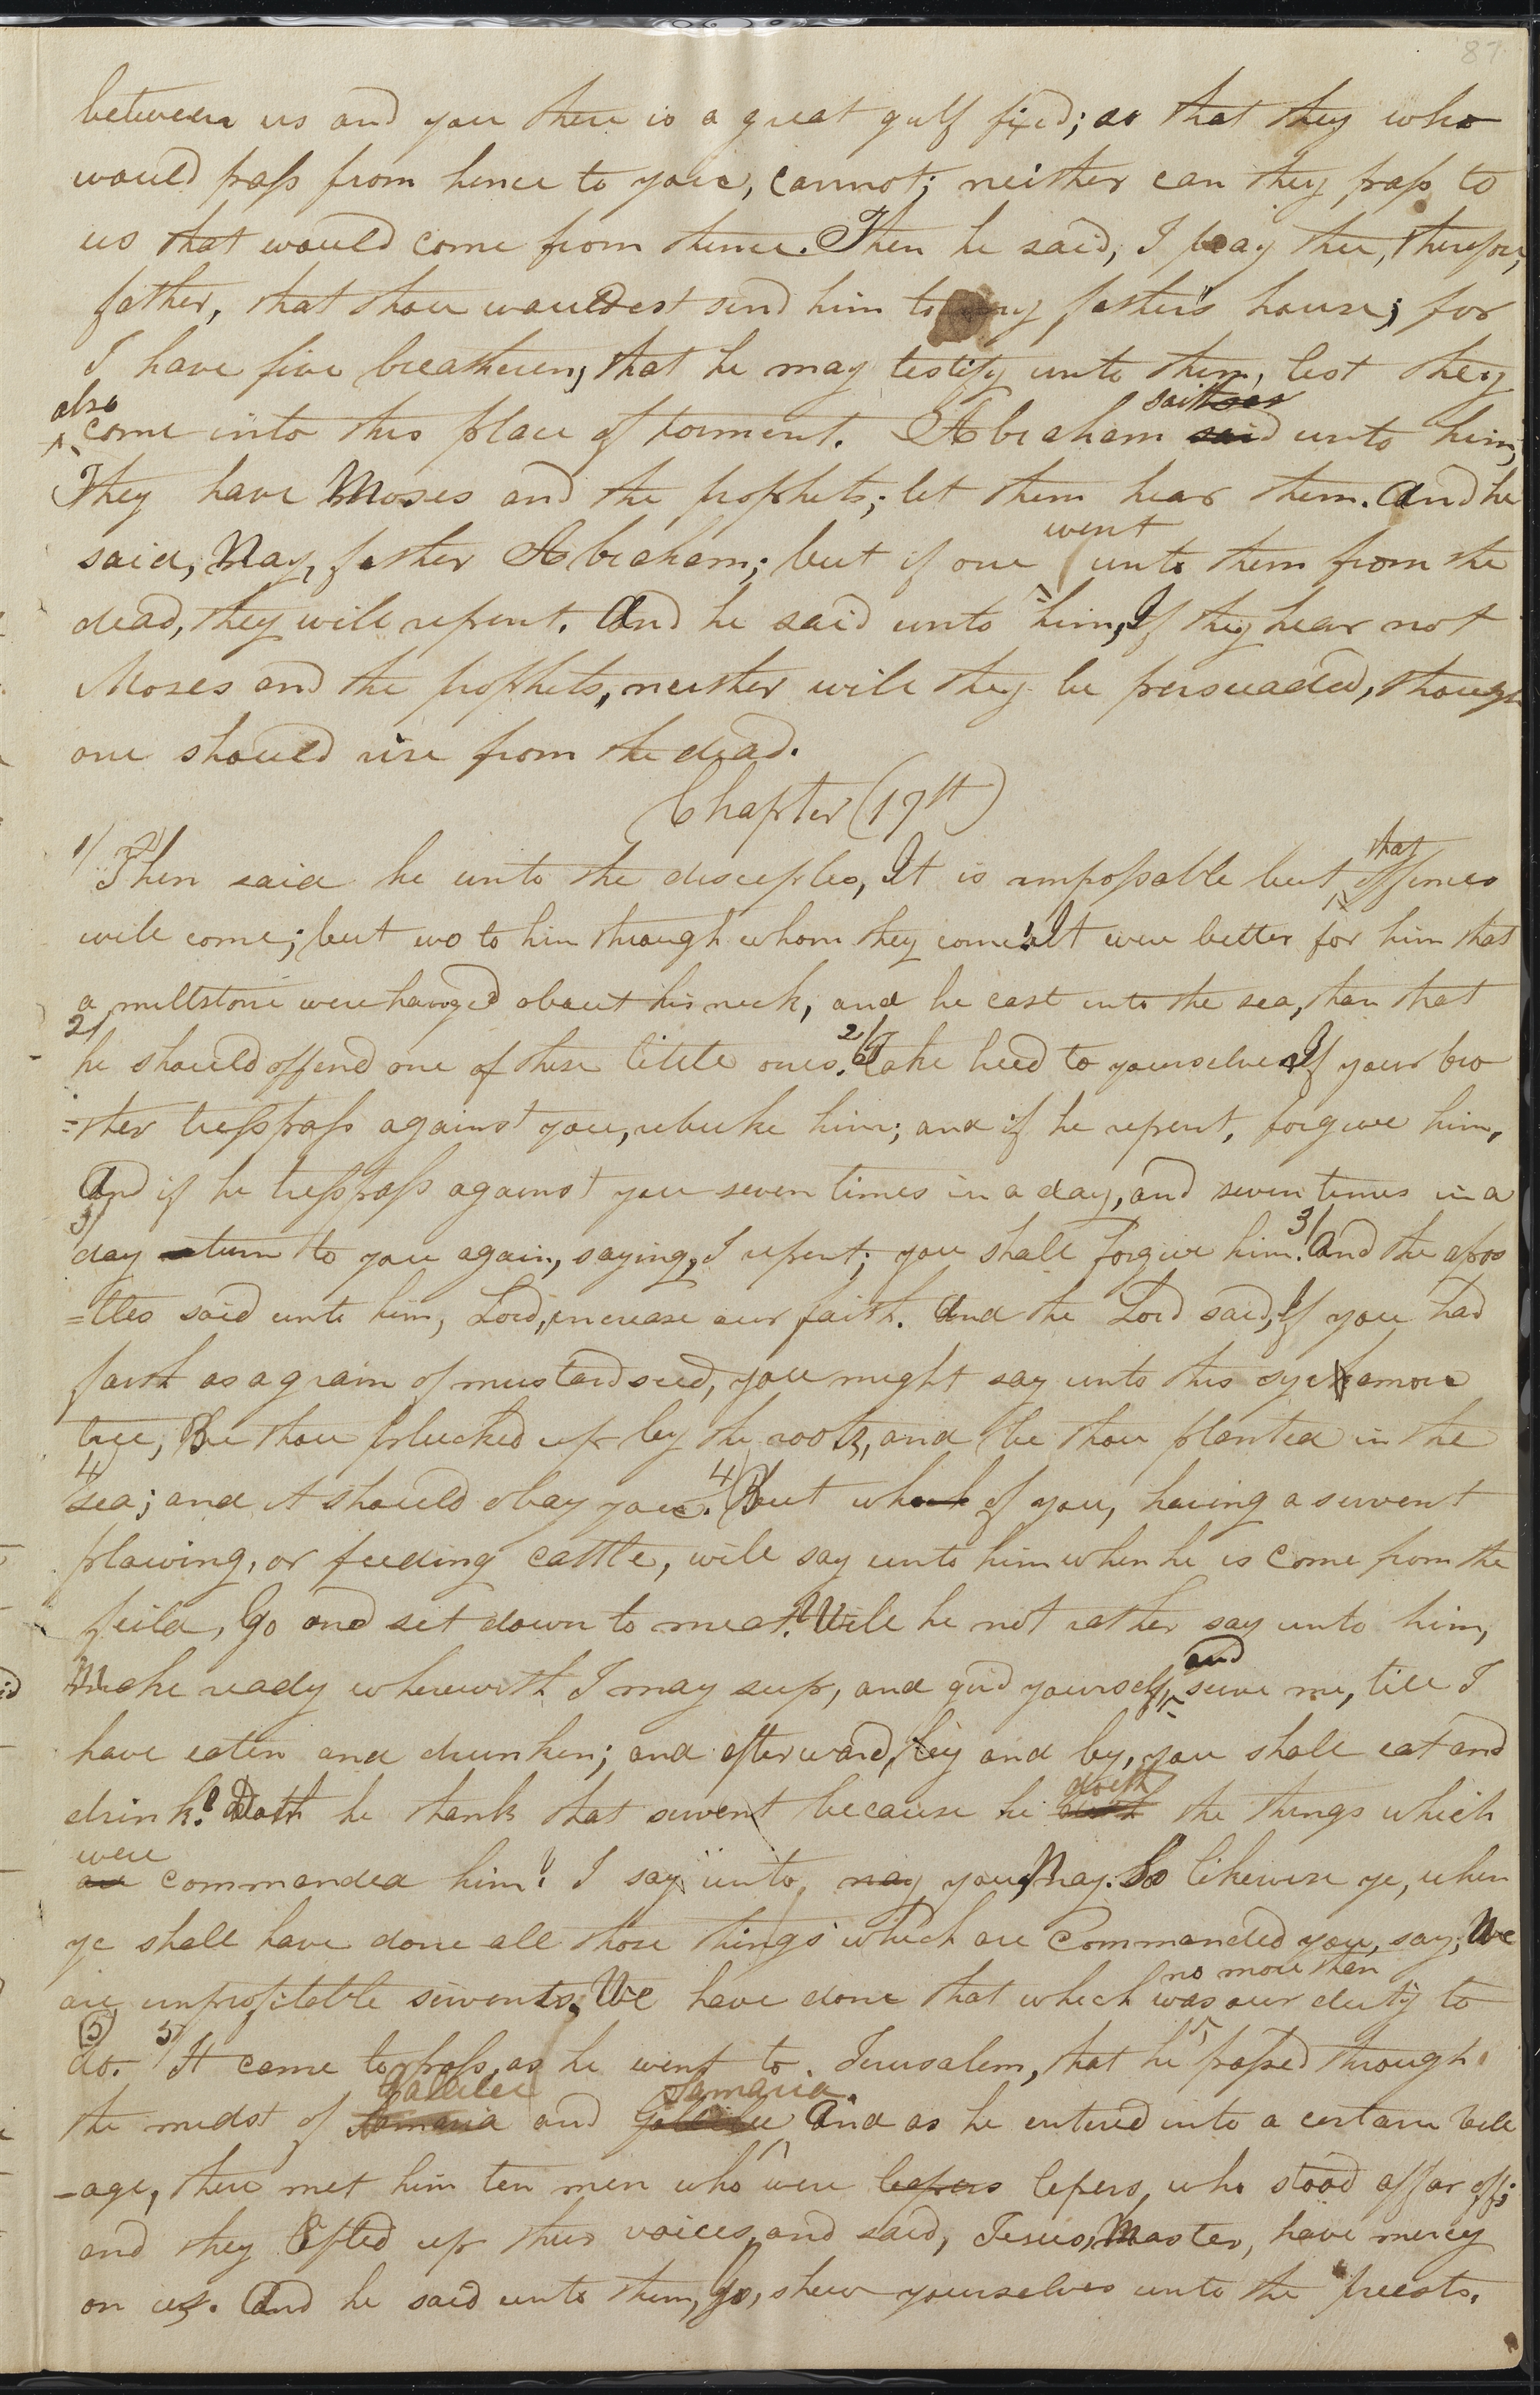 87
between us and you there is a great gulf fixed; so that they who
would pass from hence to you, cannot; neither can they pass to
us that would come from thence. Then he said, I pray thee, therefore,
father, that thou wouldest send him to my father's house; for
I have five breatheren, that he may testify unto them, lest they
also saith
come into this place of torment. Abraham said unto him,
They have Moses and the prophets; let them hear them. And he
went
said, Nay, father Abraham; but if one unto them from the
dead, they will repent. And he said unto him, If they hear not
Moses and the prophets, neither will they be persuaded, though
one should rise from the dead.
Chapter (17th)
that
1/ Then said he unto the disceples, It is impossable but offences
will come; but wo to him through whom they come! It were better for him that
a millstone were hanged about his neck, and he cast into the sea, than that
2/ he should offend one of these little ones. 2/ Take heed to yourselves. If your bro
=ther tresspass against you, rebuke him; and if he repent, forgive him,
And if he tresspass against you seven times in a day, and seven times in a
3/ day turn to you again, saying, I repent; you shall forgive him. 3/ And the apos
=tles said unto him, Lord, increase our faith. And the Lord said, If you had
faith as a grain of mustard seed, you might say unto this sycamore
tree, Be thou plucked up by the roots, and be thou planted in the
4/ sea; and it should obay you. 4/ But who of you, having a servent
plowing, or feeding cattle, will say unto him when he is come from the
feild, Go and set down to meat? Will he not rather say unto him,
and
Make ready wherewith I may sup, and gird yourself, serve me, till I
have eaten and drunken; and afterward, by and by, you shall eat and
doeth
drink? Doth he thank that servent because he doth the things which
were
are commanded him? I say unto, nay you, Nay. So likewise ye, when
ye shall have done all those things which are commanded you, say, We
no more than
are unprofitable servents. We have done that which was our duty to
(5) do. 5/ It came to pass, as he went to Jerusalem, that he passed through
Gallilee Samaria.
the midst of Samaria and Gallilee And as he entered into a certain vill
-age, there met him ten men who were lepers lepers, who stood affar off;
and they lifted up their voices, and said, Jesus, Master, have mercy
on us. And he said unto them, go, shew yourselves unto the preests.